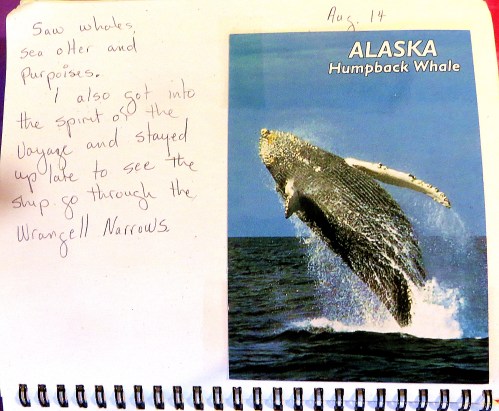 Aug. 14
Saw whales,
sea otter and
Purpoises.
I also got into
the spirit of the
Voyage and stayed
up late to see the
ship go through the
Wrangell Narrows.
ALASKA
Humpback Whale